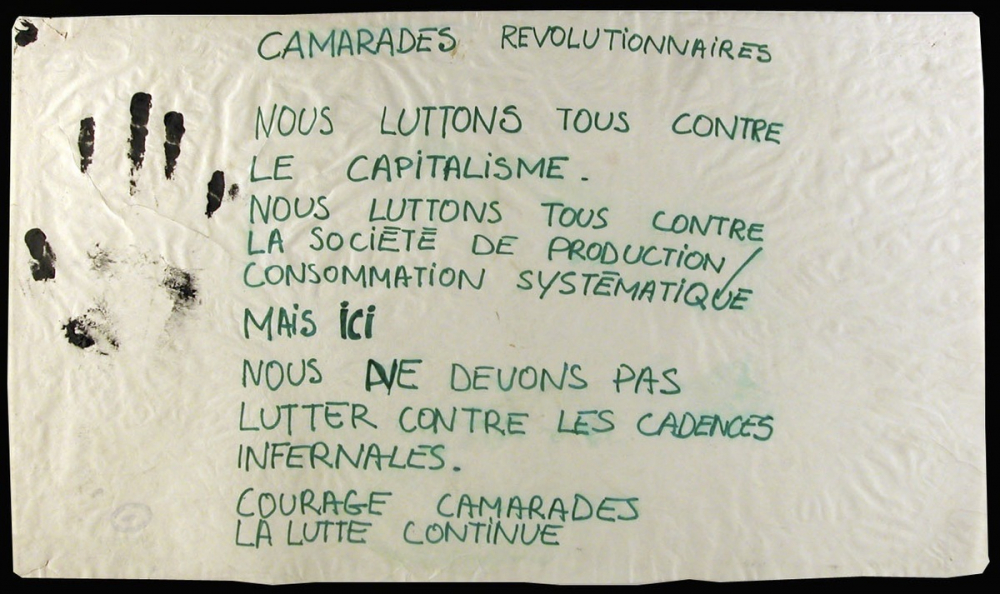 CAMARADES REVOLUTiONNAiRES
NOUS LUTTONS TOUS CONTRE
LE CAPiTALiSME.
NOUS LUTTONS TOUS CONTRE
LA SOCiÉTÉ DE PRODUCTiON/
CONSOMMATiON SYSTÉMATiQUE
MAiS iCi
NOUS NE DEVONS PAS
LUTTER CONTRE LES CADENCES
INFERNALES.
COURAGE CAMARADES
LA LUTTE CONTiNUE